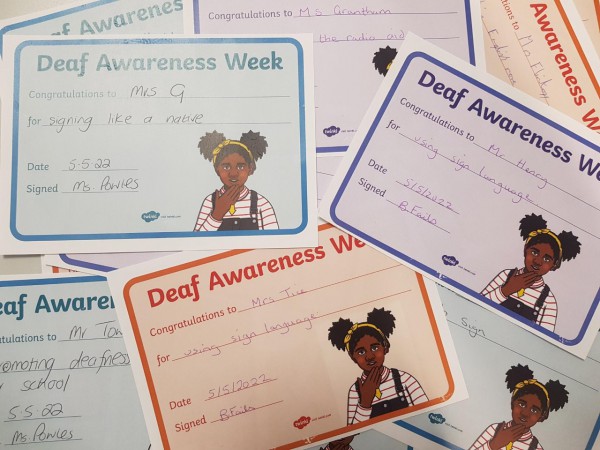 Congratulations to Ms Grantham
the radio aid
Deaf Awareness Week
Congratulations to Mrs G
for signing like a native
Date 5.5.22
Signed Ms. Powles
twinkl
Deaf Awareness We
Congratulations to Mr Henry
for using sign language
Date 5/5/2022
Signed B.Faila
twinkl
Deaf Awareness Wee
Congratulations to Mrs
for using sign language
Date 5/5/2022
Signed B.Faila
twinkl
eaf Awaren
ngratulations to Mr Tom
romoting deafness
school
5.5.22
Ms. Powles
Sign
twinkl